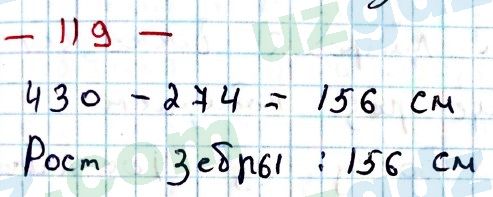 - 119 -
430 - 274 = 156 см
Рост зебры : 156 см